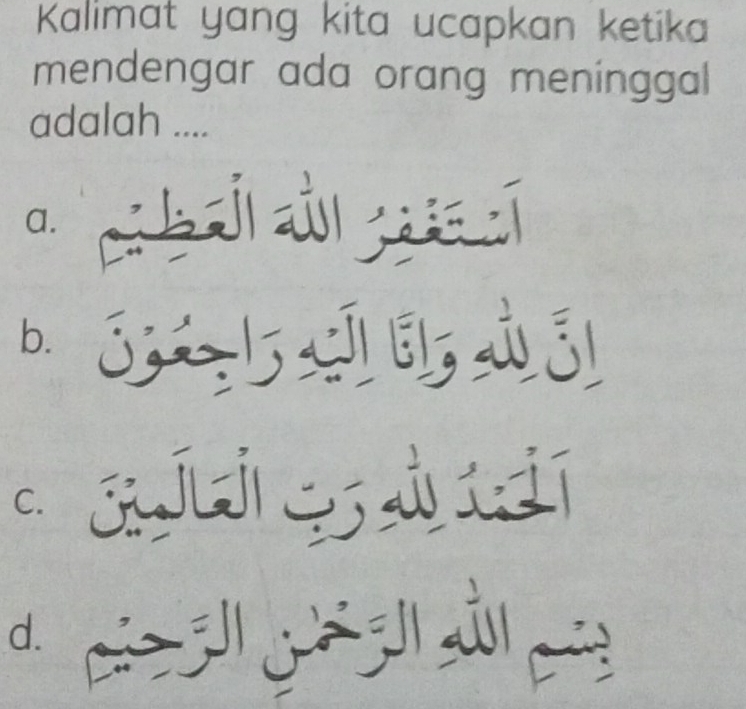 Kalimat yang kita ucapkan ketika
mendengar ada orang meninggal
adalah ....
a. اَسْتَغْفِرُ اللّٰهَ الْعَظِيْمِ
b. اِنَّ لِلّٰهِ وَاِنَّا اِلَيْهِ رَاجِعُوْنَ
c. اَلْحَمْدُ لِلّٰهِ رَبِّ الْعَالَمِيْنَ
d. بِسْمِ اللّٰهِ الرَّحْمٰنِ الرَّحِيْمِ